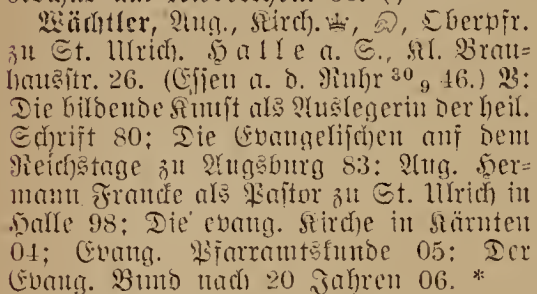 Wächtler, Aug., Kirch. Oberpfr.
zu St. Ulrich. Halle a. S., Kl. Brau=
hausstr. 26. (Essen a. d. Ruhr 30 9 46.) V:
Die bildende Kunst als Auslegerin der heil.
Schrift 80; Die Evangelischen auf dem
Reichstage zu Augsburg 83; Aug. Her=
mann Francke als Pastor zu St. Ulrich in
Halle 98; Die evang. Kirche in Kärnten
04; Evang. Pfarramtskunde 05; Der
Evang. Bund nach 20 Jahren 06. *